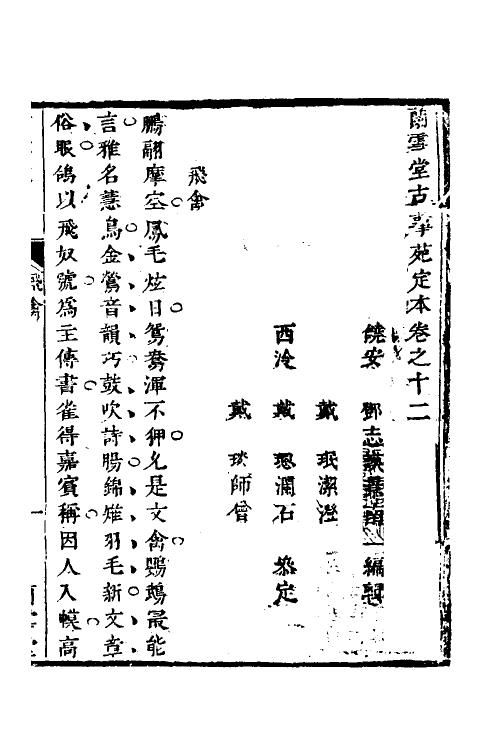 蘭雪堂古事苑定本卷之十二
饒安 鄧志謨 編輯
戴 珉潔澄
西泠 戴 瀾石 叅定
戴 琰師曾
飛禽
鵬翮摩空鳳毛炫日鴛鴦渾不狎允是文禽鸚鵡最能
言雅名慧鳥金鶯音韻巧鼓吹詩腸錦雉羽毛新文章
俗眼鴿以飛奴號爲主傳書雀得嘉賓稱因人入幙高
飛禽
一